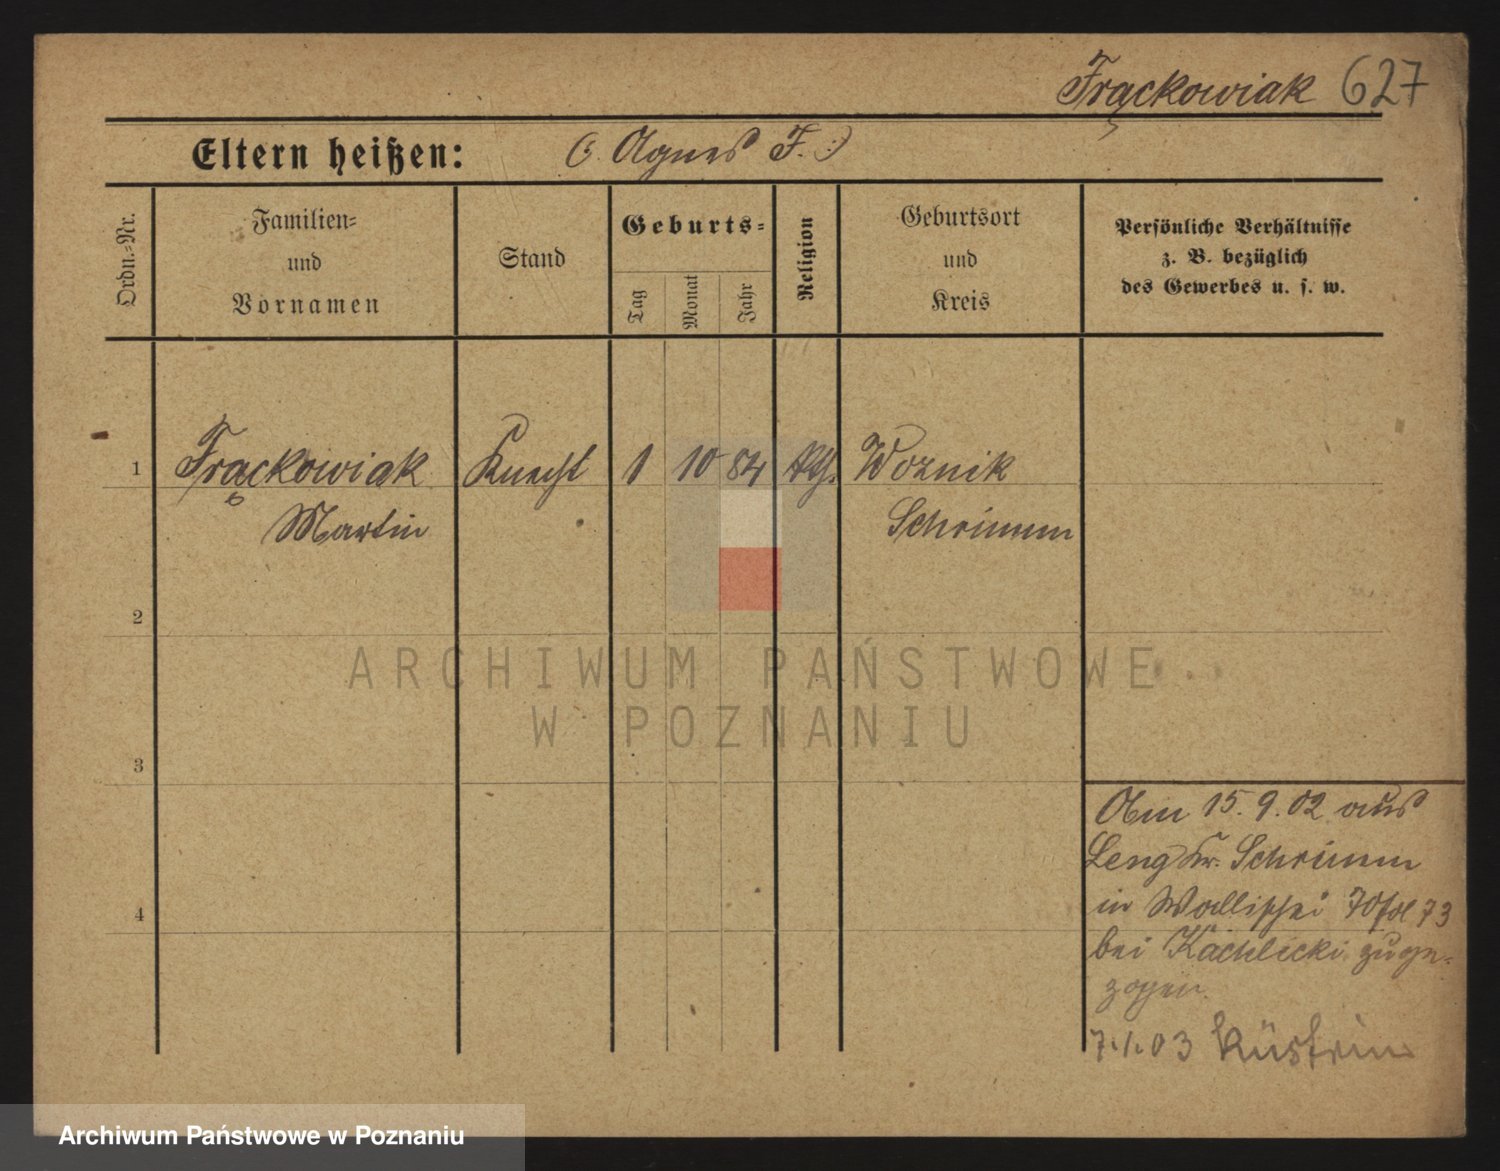 Frąckowiak 627
Eltern heißen: (: Agnes F. :)
Ordn.-Nr.
Familien-
und
Vornamen
Stand
Geburts-
Tag
Monat
Jahr
Religion
Geburtsort
und
Kreis
Persönliche Verhältnisse
z. B. bezüglich
des Gewerbes u. s. w.
1 Frąckowiak Knecht 1 10 84 kth. Woznik
Martin Schrimm
2
ARCHIWUM PAŃSTWOWE
W POZNANIU
3
Am 15.9.02 aus
Leng Kr. Schrimm
in Wallischei 73
bei Kachlicki zuge-
zogen.
4
7.1.03 Küstrin
Archiwum Państwowe w Poznaniu